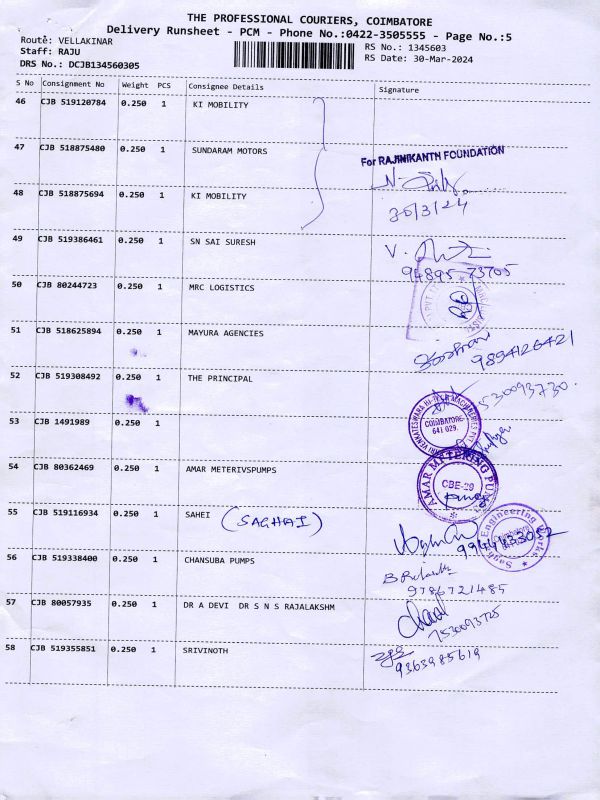 THE PROFESSIONAL COURIERS, COIMBATORE
Delivery Runsheet - PCM - Phone No.:0422-3505555 - Page No.:5
Route: VELLAKINAR
RS No.: 1345603
Staff: RAJU
RS Date: 30-Mar-2024
DRS No.: DCJB134560305
S No Consignment No Weight PCS Consignee Details Signature
46 CJB 519120784 0.250 1 KI MOBILITY
47 CJB 518875480 0.250 1 SUNDARAM MOTORS
For RAJINIKANTH FOUNDATION
48 CJB 518875694 0.250 1 KI MOBILITY
30/3/24
49 CJB 519386461 0.250 1 SN SAI SURESH
94895 73705
50 CJB 80244723 0.250 1 MRC LOGISTICS
51 CJB 518625894 0.250 1 MAYURA AGENCIES
9894126421
52 CJB 519308492 0.250 1 THE PRINCIPAL
530093730.
53 CJB 1491989 0.250 1
COIMBATORE
641 029.
54 CJB 80362469 0.250 1 AMAR METERIVSPUMPS
AMAR METERING PU
CBE-29
55 CJB 519116934 0.250 1 SAHEI (SAGHAI)
Engineering Works
9944433052
56 CJB 519338400 0.250 1 CHANSUBA PUMPS
9786721485
57 CJB 80057935 0.250 1 DR A DEVI DR S N S RAJALAKSHM
7530093725
58 CJB 519355851 0.250 1 SRIVINOTH
9363985619